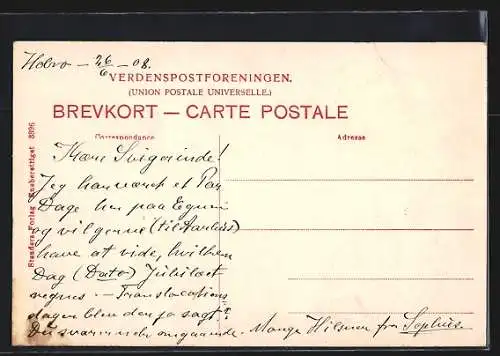 Hobro – 26/6 – 08.
VERDENSPOSTFORENINGEN.
(UNION POSTALE UNIVERSELLE.)
BREVKORT — CARTE POSTALE
Correspondance
Adresse
Stenders Forlag Eneberettiget 8896
Kære Svigerinde!
Jeg har været et Par
Dage her paa Egnen
og vil gerne (til Aarhus)
have at vide, hvilken
Dag (Dato) Jubilæet
regnes. – Translocations
dagen blev den jo sagt?
Du svarer nok omgaaende. Mange Hilsner fra Sophus.